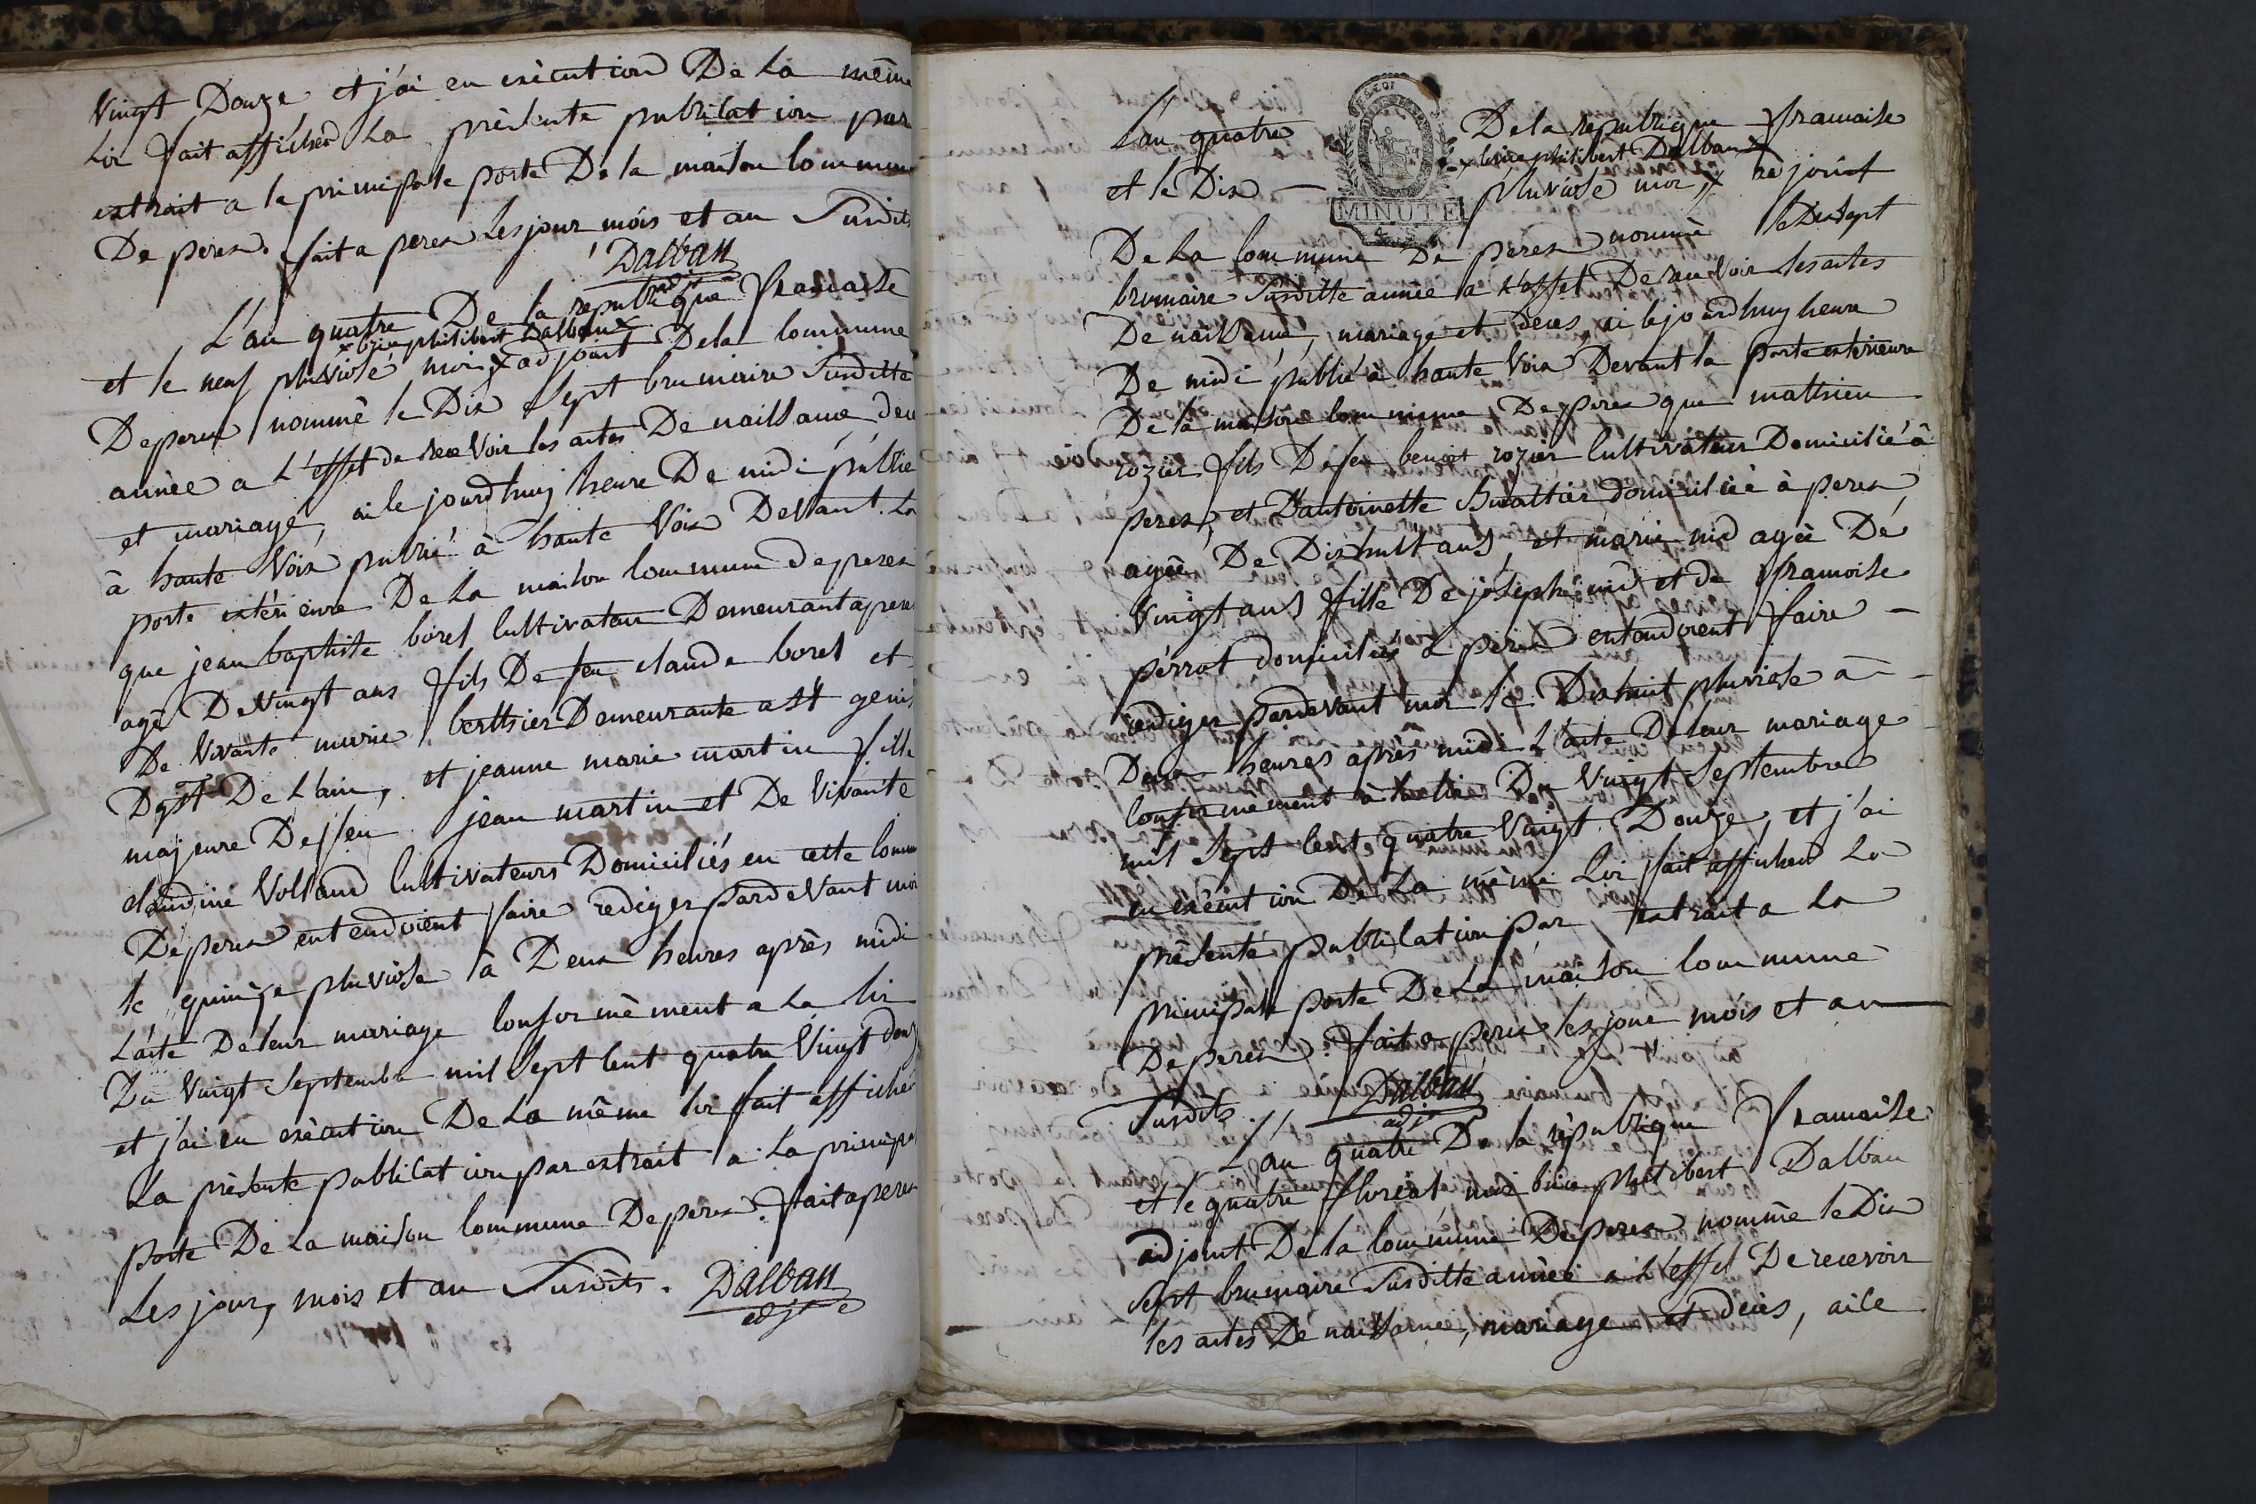 Vingt Douze et j'ai en exècution De La même
Loi fait afficher La présente publication par
extrait a la principale porte De la maison commune
De perex. fait a perex les jour mois et an Susdits
Dalban
adjt
L'an quatre De la republique francaise
x brice philibert Dalban x
et le neuf pluviôse moi x adjoint De la commune
De perex nommé le Dix Sept brumaire Susditte
année a L'effet de recevoir les actes De naissance deces
et mariage, ai le jourdhuy heure De midi publié
à haute Voix publié à haute Voix Devant La
porte extérieure De La maison commune de perex
que jean baptiste borel cultivateur Demeurant a perex
agé De Vingt ans fils De feu claude borel et
De Vivante marie berthier Demeurante a St genis
Dgst De Lain, et jeanne marie martin fille
majeure De feu jean martin et De Vivante
claudine Volland cultivateurs Domiciliés en cette commune
De perex entendoient faire rediger pardevant moi
le quinze pluviose à Deux heures après midi
L'acte De leur mariage conformément a La loi
Du Vingt Septembre mil Sept Cent quatre Vingt douze
et j'ai en exécution De La même loi fait afficher
La présente publication par extrait a La principale
porte De La maison commune De perex. fait a perex
Les jour, mois et an Susdits. Dalban
adjt
L'an quatre De la republique francaise
x brice philibert Dalban x
et le Dix pluviose moi, x adjoint
MINUTE
De La commune De perex nommé le Dix Sept
brumaire Susditte année a L'effet De recevoir les actes
De naissance, mariage et deces, ai le jourdhuy heure
De midi publié à haute Voix Devant la porte exterieure
De la maison commune De perex que mathieu
rozier fils De feu benoit rozier Cultivateur Domicilié à
perex, et D'antoinette domiciliée à perex
agé De Dixhuit ans, et marie nid agée De
Vingt ans fille De joseph nid et de francoise
perrat domiciliés à perex entendoient faire
rediger pardevant moi le Dixhuit pluviose a
Deux heures après midi L'acte De leur mariage
conformement à la loi Du Vingt Septembre
mil Sept Cent quatre Vingt Douze, et j'ai
en exécution De La même Loi fait afficher La
présente publication par extrait a La
principale porte De La maison commune
De perex. fait a perex les jour mois et an
Susdits. Dalban
adjt
L'an quatre De la république francaise
et le quatre floreal moi brice philibert Dalban
adjoint De la commune De perex nommé le Dix
Sept brumaire Susditte année a L'effet De recevoir
les actes De naissance, mariage et deces, ai le